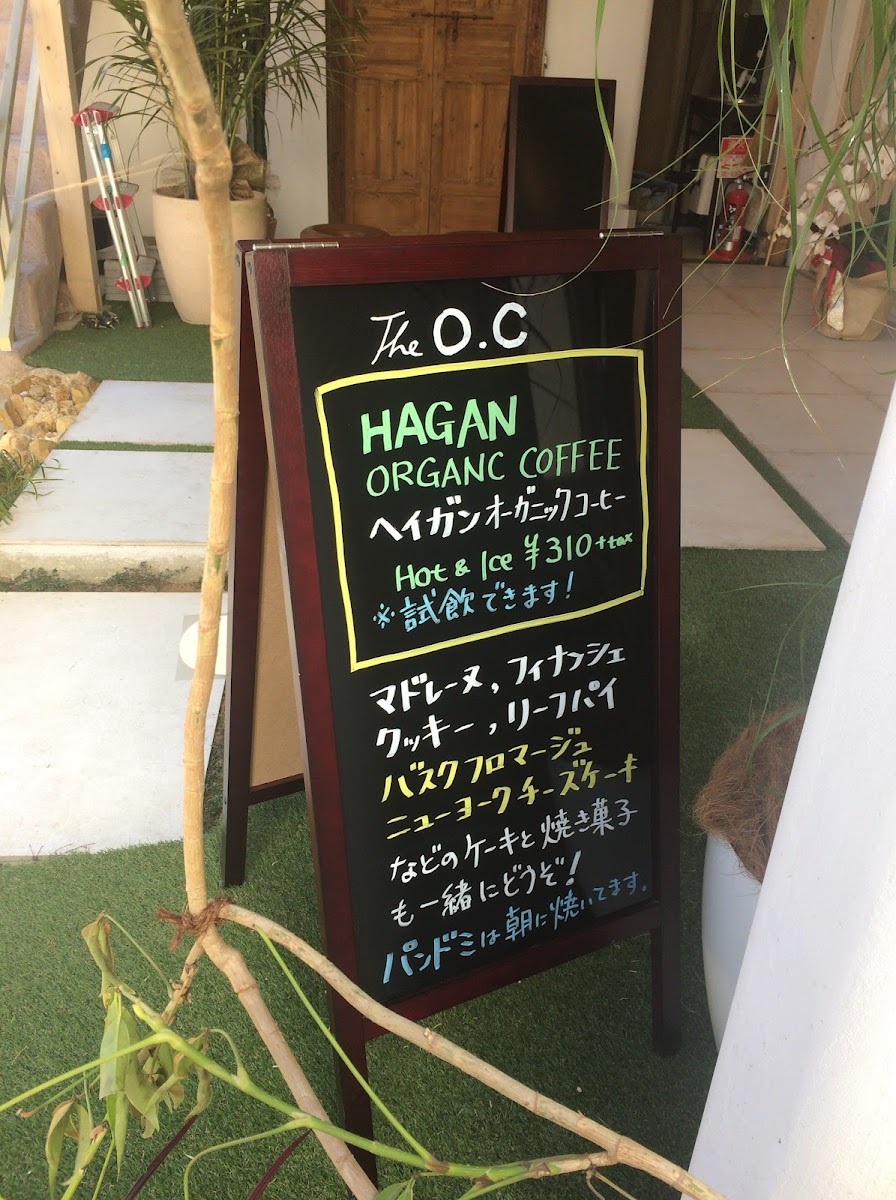 The O.C
HAGAN
ORGANC COFFEE
ヘイガンオーガニックコーヒー
Hot & Ice ¥310+tax
※試飲できます!
マドレーヌ,フィナンシェ
クッキー,リーフパイ
バスクフロマージュ
ニューヨークチーズケーキ
などのケーキと焼き菓子
も一緒にどうぞ!
パンドミは朝に焼いてます。